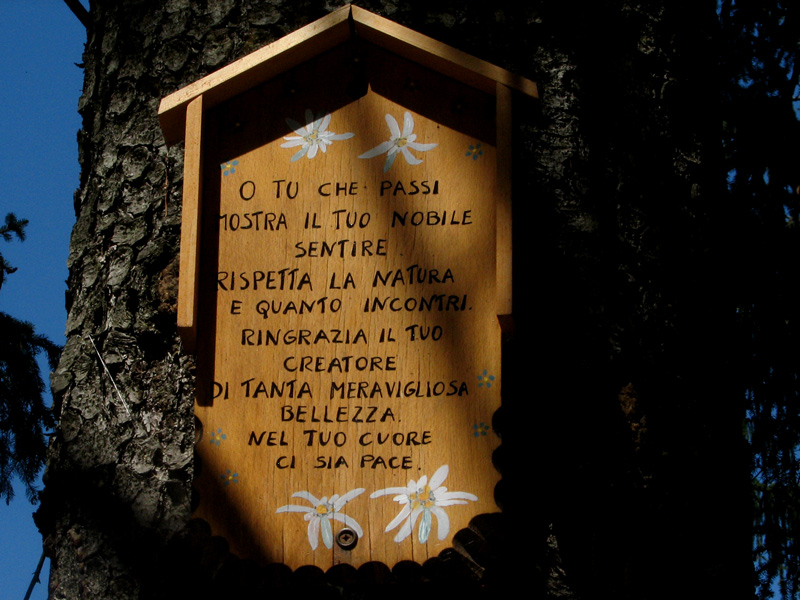 O TU CHE PASSI
MOSTRA IL TUO NOBILE
SENTIRE.
RISPETTA LA NATURA
E QUANTO INCONTRI.
RINGRAZIA IL TUO
CREATORE
DI TANTA MERAVIGLIOSA
BELLEZZA.
NEL TUO CUORE
CI SIA PACE.